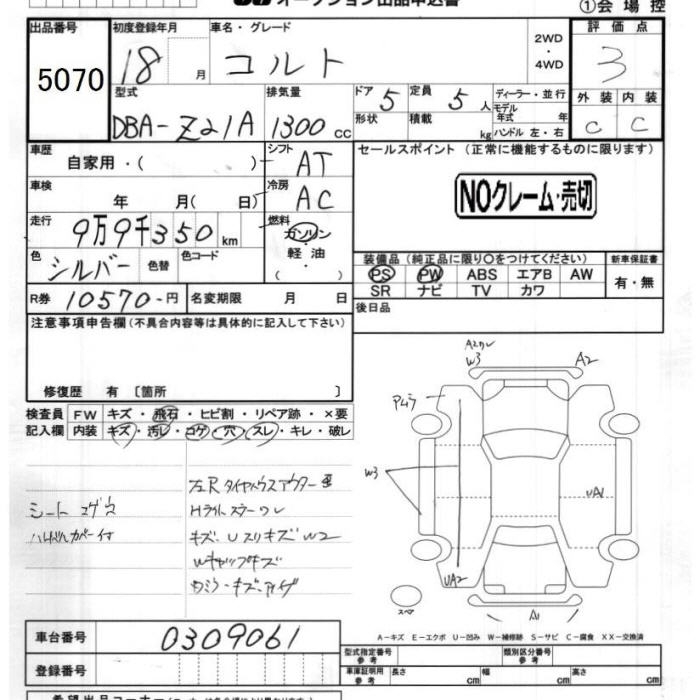 オークション出品申込書
①会場控
出品番号 初度登録年月 車名・グレード 2WD 評価点
5070 18 月 コルト ・4WD 3
型式 排気量 ドア 5 定員 5人 ディーラー・並行 外装 内装
DBA-Z21A 1300cc 形状 積載 kg モデル年式 年 ハンドル 左・右 C C
車歴 自家用・( ) シフト AT セールスポイント (正常に機能するものに限ります)
車検 年 月( 日) 冷房 AC NOクレーム・売切
走行 9万9千350km 燃料 ガソリン・軽油・( )
色 シルバー 色替 色コード 装備品(純正品に限り○をつけてください) 新車保証書
PS PW ABS エアB AW 有・無
SR ナビ TV カワ
R券 10570-円 名変期限 月 日 後日品
注意事項申告欄(不具合内容等は具体的に記入して下さい)
修復歴 有 〔箇所 〕
検査員記入欄 FW キズ・飛石・ヒビ割・リペア跡・×要
内装 キズ・汚レ・コゲ・穴・スレ・キレ・破レ
シート コゲ穴
ハンドルカバー付
Hライト
キズ・Uスリキズ W2
Wキャップキズ
A2ワレ
W3
A2
W3
UA1
UA2
A1
スペア
A-キズ E-エクボ U-凹み W-補修跡 S-サビ C-腐食 XX-交換済
車台番号 0309061
登録番号
型式指定番号 参考 類別区分番号 参考
車庫証明用 参考 長さ cm 幅 cm 高さ cm